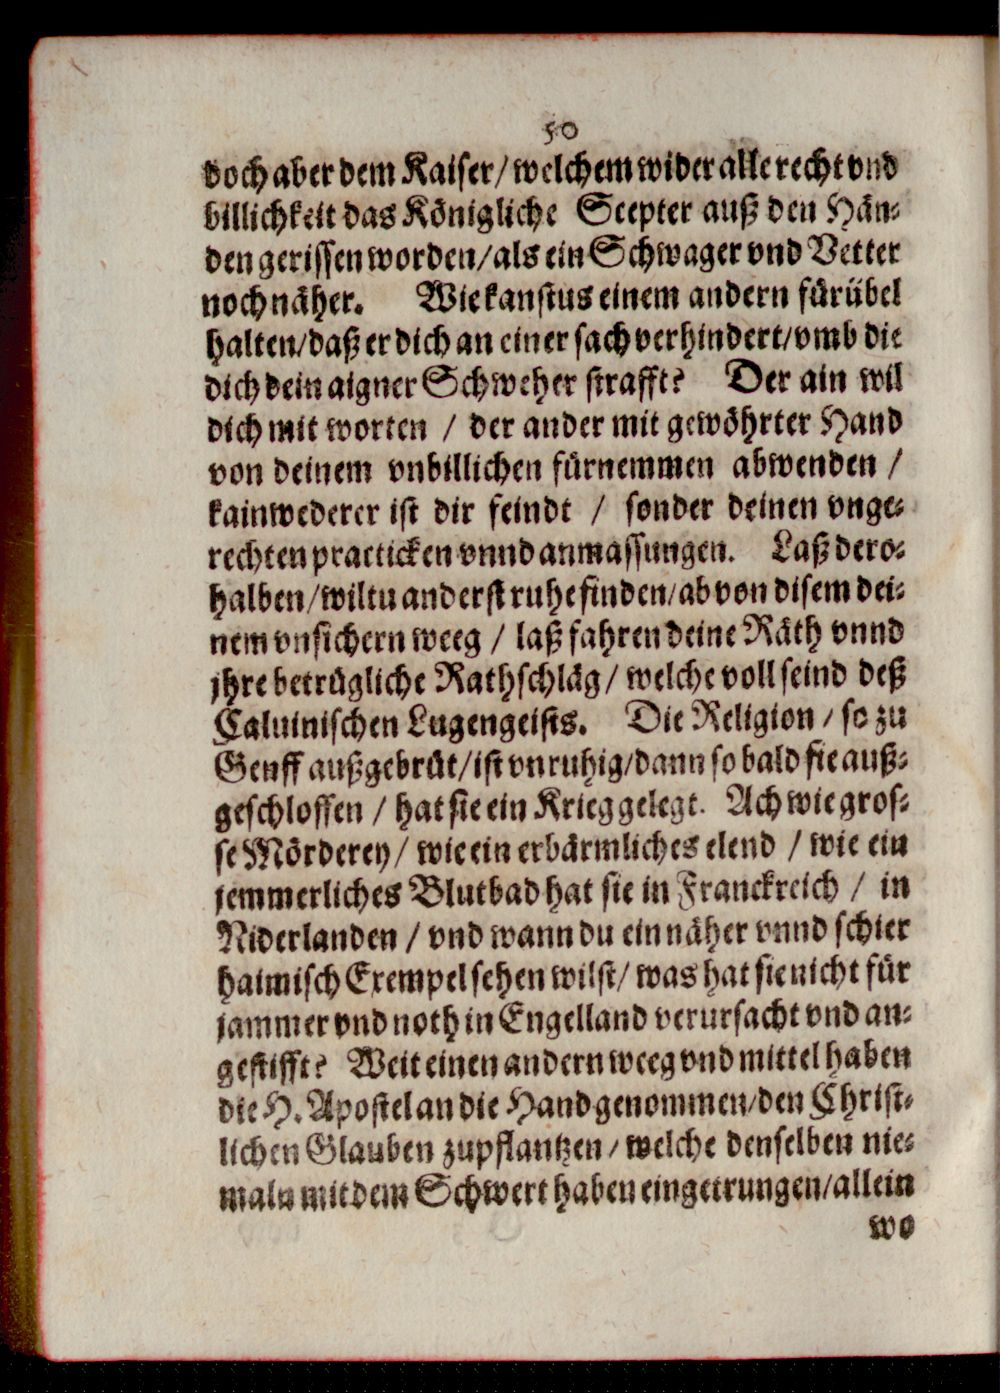 50
doch aber dem Kaiser/ welchem wider alle recht vnd
billichkeit das Königliche Scepter auß den Hän-
den gerissen worden/ als ein Schwager vnd Vetter
noch näher. Wie kanstus einem andern für übel
halten/ daß er dich an einer sach verhindert/ vmb die
dich dein aigner Schweher strafft? Der ain wil
dich mit worten / der ander mit gewöhrter Hand
von deinem vnbillichen fürnemmen abwenden /
kainwederer ist dir feindt / sonder deinen vnge-
rechten practicken vnnd anmassungen. Laß dero-
halben/ wiltu anderst ruhe finden/ ab von disem dei-
nem vnsichern weeg / laß fahren deine Räth vnnd
jhre betrügliche Rathschläg/ welche voll seind deß
Caluinischen Lugengeists. Die Religion / so zu
Genff außgebrüt/ ist vnruhig/ dann so bald sie auß-
geschlossen / hat sie ein Krieg gelegt. Ach wie gros-
se Mörderey/ wie ein erbärmliches elend / wie ein
jemmerliches Blutbad hat sie in Franckreich / in
Niderlanden / vnd wann du ein näher vnnd schier
haimisch Exempel sehen wilst/ was hat sie nicht für
jammer vnd noth in Engelland verursacht vnd an-
gestifft? Weit einen andern weeg vnd mittel haben
die H. Apostel an die Hand genommen/ den Christ-
lichen Glauben zupflantzen / welche denselben nie-
maln mit dem Schwert haben eingetrungen/ allein
wo